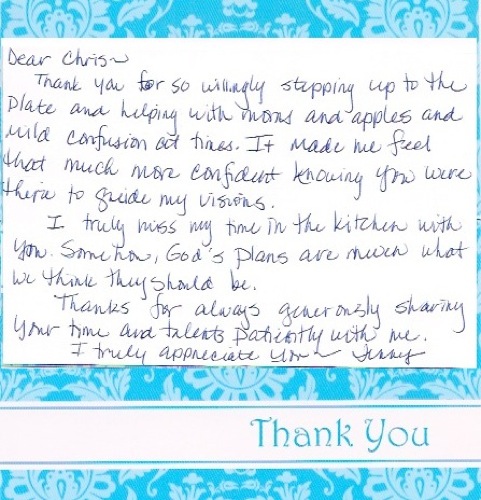 Dear Chris~
Thank you for so willingly stepping up to the
plate and helping with moms and apples and
mild confusion at times. It made me feel
that much more confident knowing you were
there to guide my visions.
I truly miss my time in the kitchen with
you. Somehow, God's plans are never what
we think they should be.
Thanks for always generously sharing
your time and talents patiently with me.
I truly appreciate you~ Jenny
Thank You